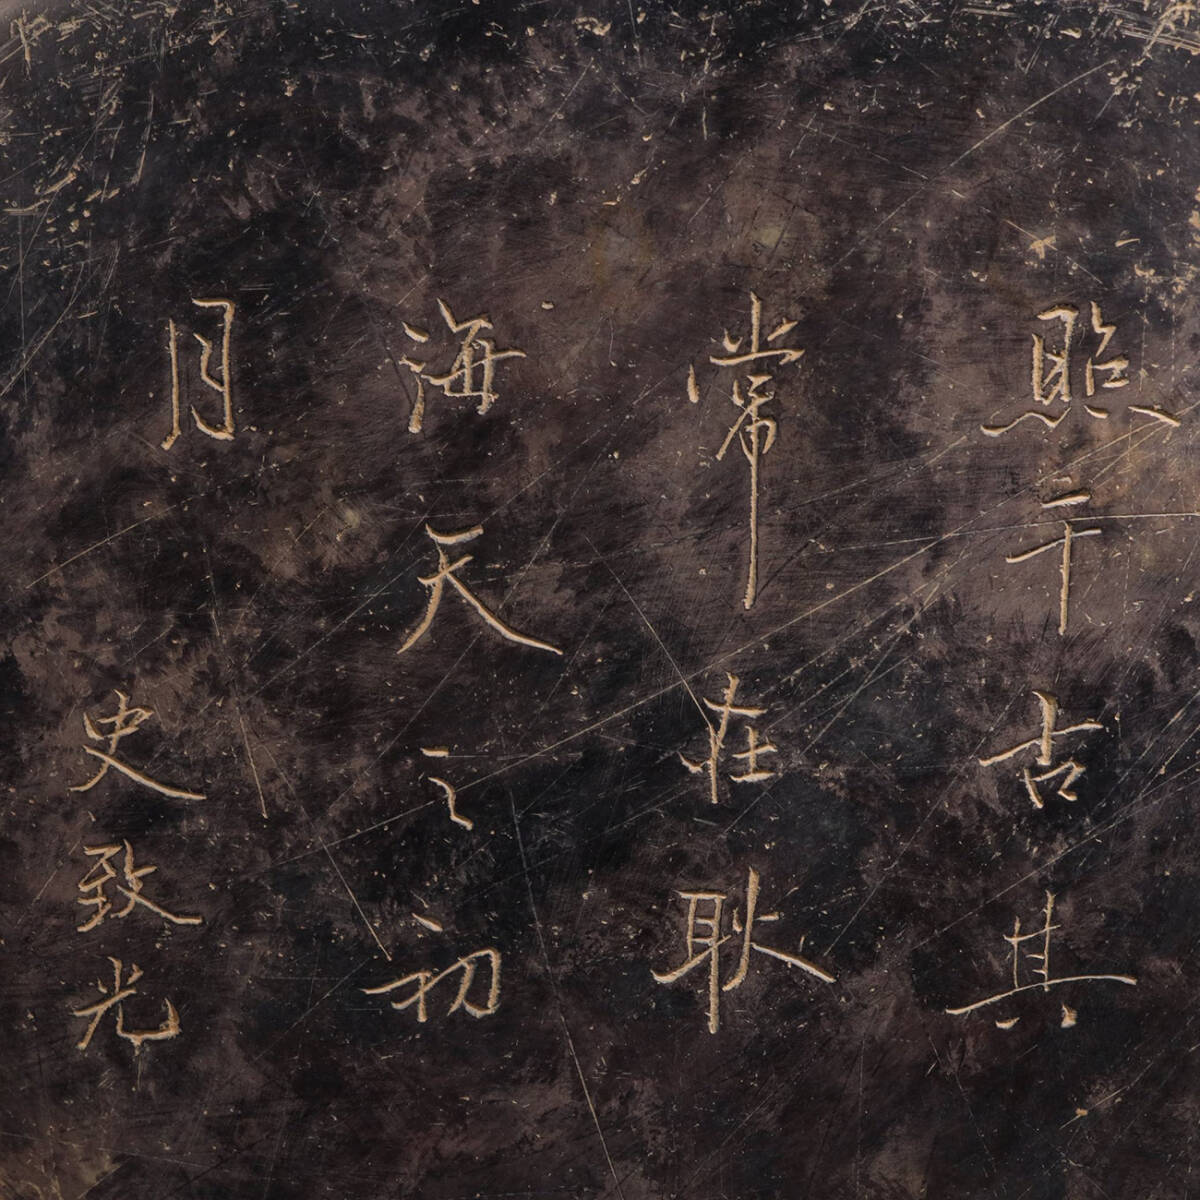 照千古其
常在耿
海天之初
月
史致光